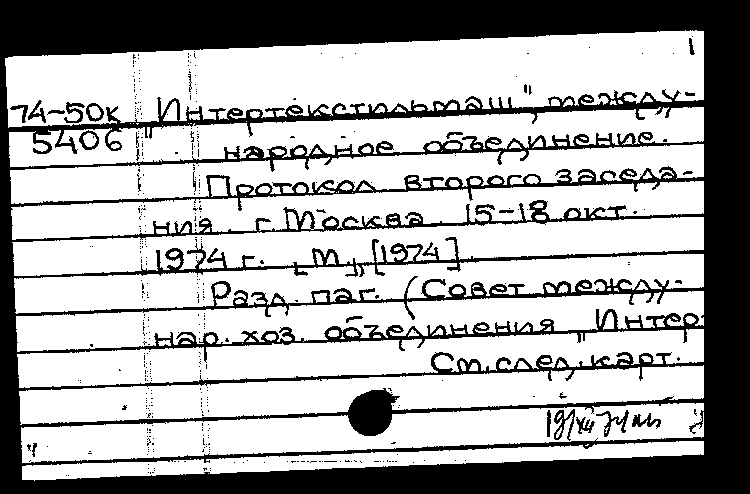 1
74-50к „Интертекстильмаш", между-
5406 народное объединение.
Протокол второго заседа-
ния. г. Москва. 15-18 окт.
1974 г. [М.], [1974].
Разд. паг. (Совет между-
нар. хоз. объединения „Интер
См. след. карт.